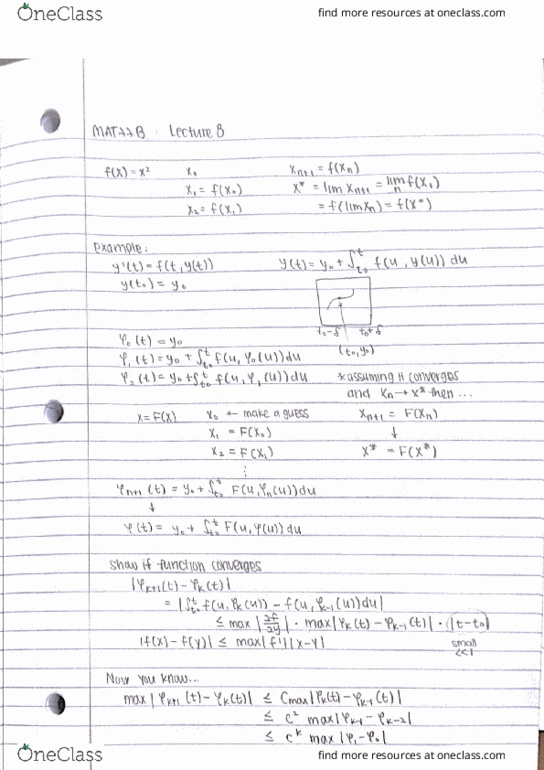 OneClass find more resources at oneclass.com
MAT77B: Lecture 8
f(x) = x² x₀ xₙ₊₁ = f(xₙ)
x₁ = f(x₀) x* = lim xₙ₊₁ = lim_n f(x₁)
x₂ = f(x₁) = f(lim xₙ) = f(x*)
Example:
y'(t) = f(t, y(t)) y(t) = y₀ + ∫_{t₀}^{t} f(u, y(u)) du
y(t₀) = y₀
t₀-δ t₀+δ
φ₀(t) = y₀ (t₀, y₀)
φ₁(t) = y₀ + ∫_{t₀}^{t} f(u, φ₀(u)) du
φ₂(t) = y₀ + ∫_{t₀}^{t} f(u, φ₁(u)) du *assuming it converges
and xₙ → x* then ...
x = F(x) x₀ ← make a guess xₙ₊₁ = F(xₙ)
x₁ = F(x₀) ↓
x₂ = F(x₁) x* = F(x*)
⋮
φₙ₊₁(t) = y₀ + ∫_{t₀}^{t} F(u, φₙ(u)) du
↓
φ(t) = y₀ + ∫_{t₀}^{t} F(u, φ(u)) du
Show if function converges
|φₖ₊₁(t) - φₖ(t)|
= |∫_{t₀}^{t} f(u, φₖ(u)) - f(u, φₖ₋₁(u)) du|
≤ max |∂f/∂y| · max|φₖ(t) - φₖ₋₁(t)| · |t-t₀|
|f(x) - f(y)| ≤ max|f'| |x-y| small
<<1
Now you know...
max |φₖ₊₁(t) - φₖ(t)| ≤ C max |φₖ(t) - φₖ₋₁(t)|
≤ c² max|φₖ₋₁ - φₖ₋₂|
≤ cᵏ max |φ₁ - φ₀|
OneClass find more resources at oneclass.com